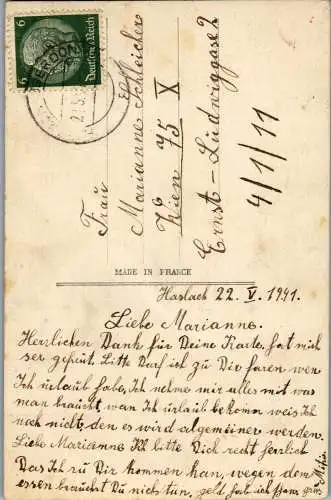 6 6
Deutsches Reich
Frau
Marianne Schleicher
Wien 75 X
Ernst-Ludwiggasse 2
4/1/11
MADE IN FRANCE
Haslach 22. V. 1941.
Liebe Marianne.
Herzlichen Dank für Deine Karte, hat mich
ser gefreut. Bitte Darf ich zu Dir faren wen
Ich urlaub habe, Ich nehme mir alles mit was
man braucht, wan Ich urlaub bekome weis Ich
noch nicht, den es wird algemeiner werden.
Liebe Marianne Ich bitte Dich recht herzlich
Das Ich zu Dir kommen kan, wegen dem
essen brauchst Du nichts tun, geld hab Ich ganz